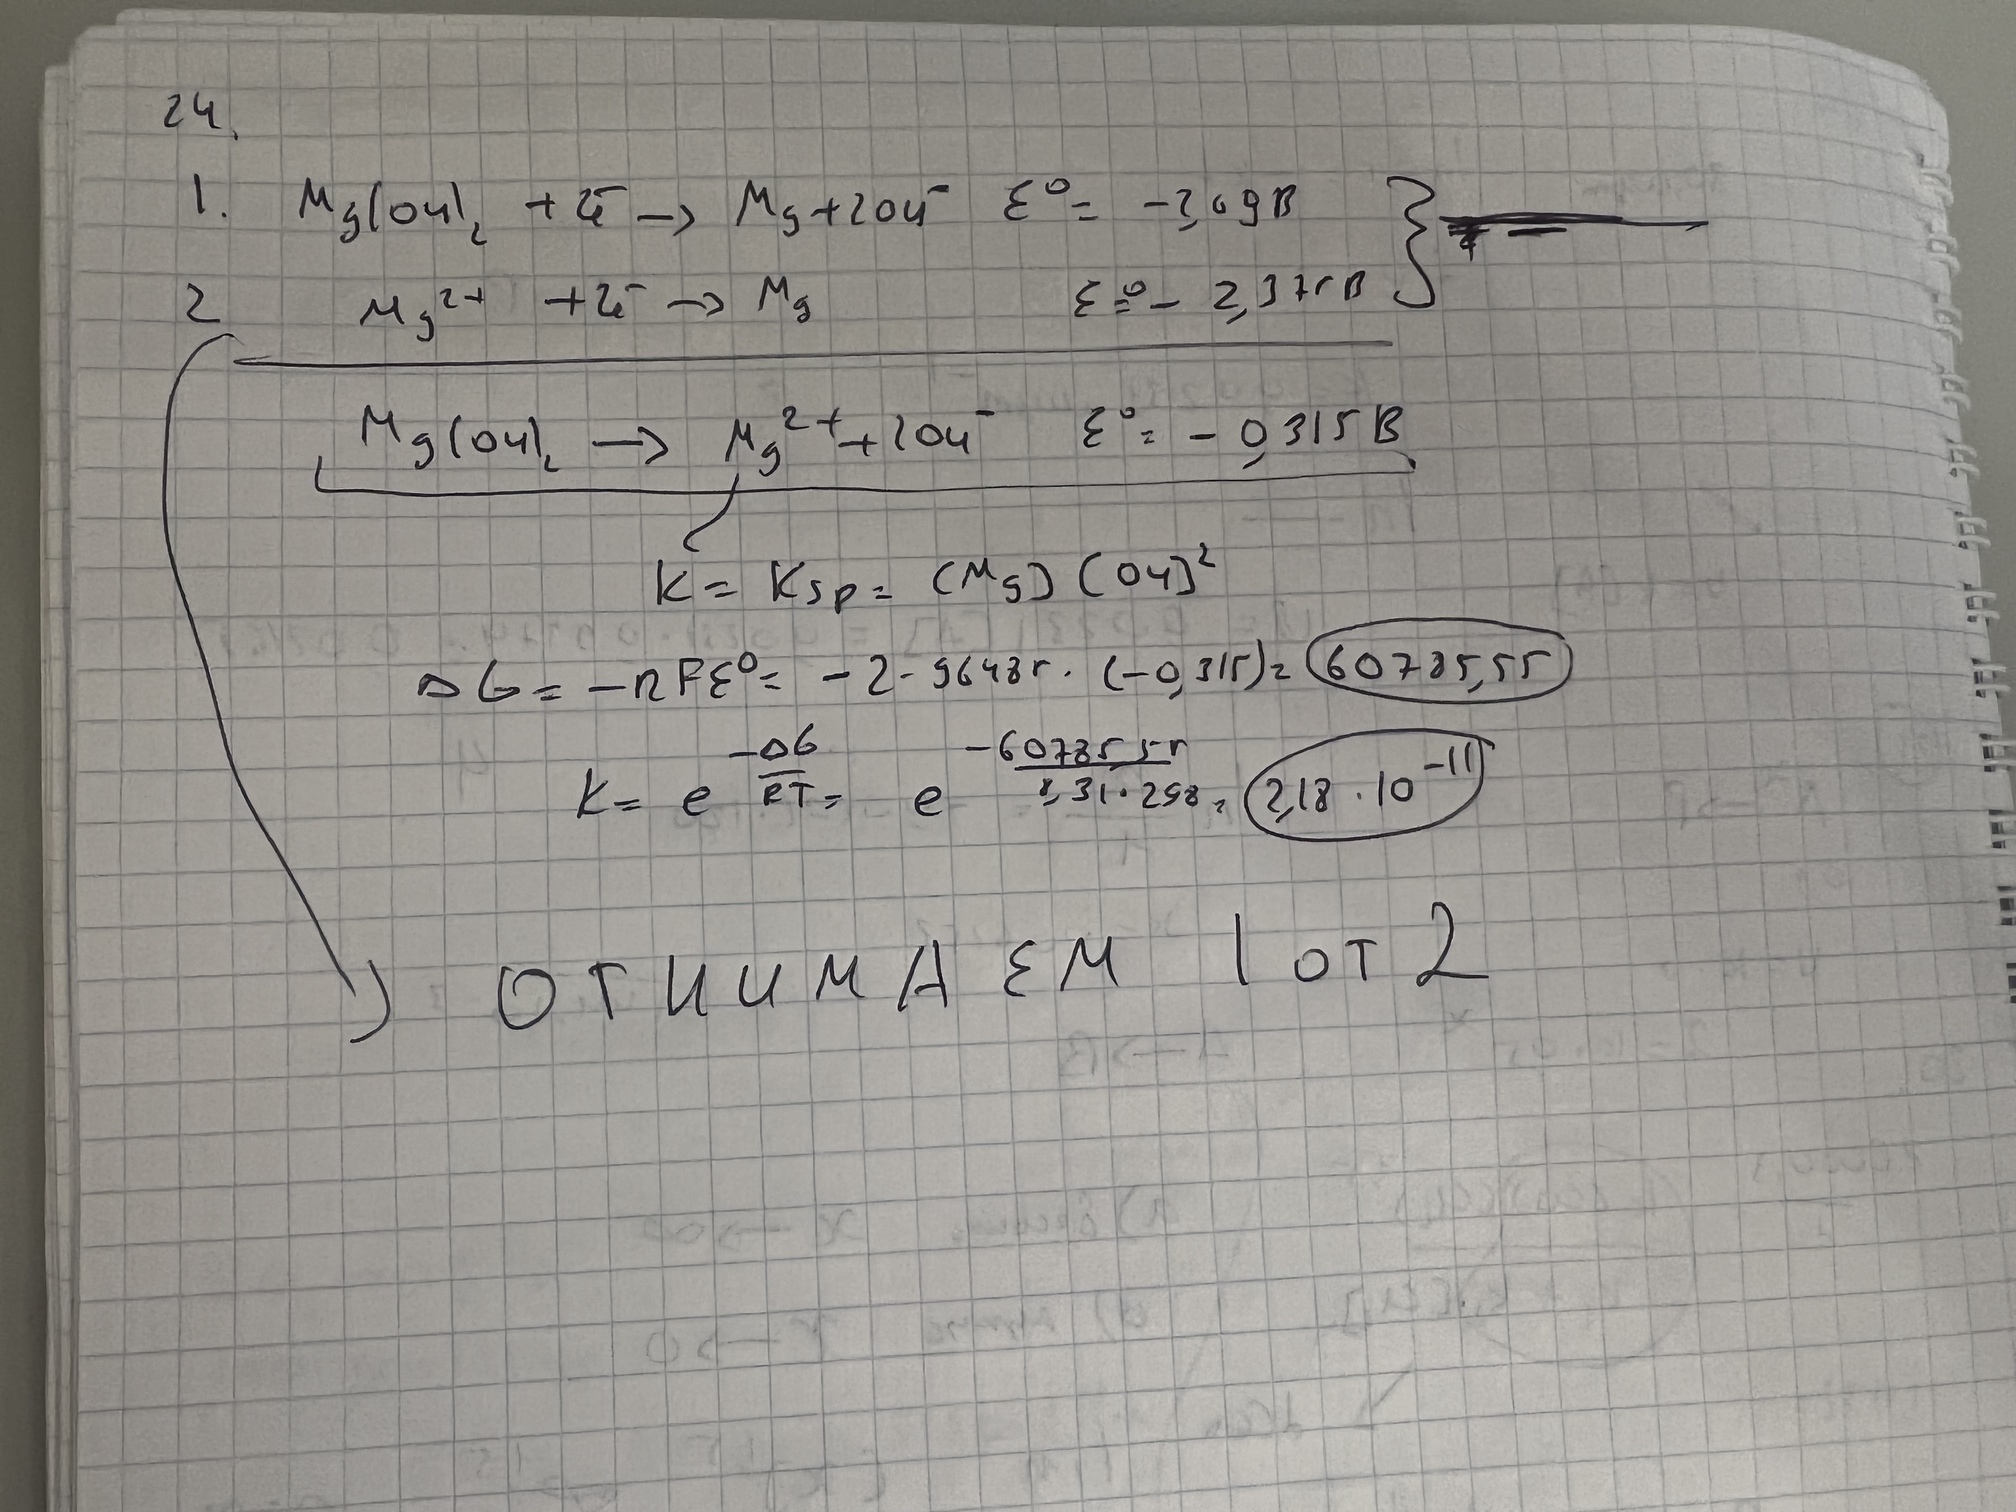 24.
1. Mg(OH)₂ + 2e⁻ → Mg + 2OH⁻ ε° = -2,69 В
2 Mg²⁺ + 2e⁻ → Mg ε° = -2,375 В
Mg(OH)₂ → Mg²⁺ + 2OH⁻ ε° = -0,315 В
K = Ksp = (Mg) (OH)²
ΔG = -nFε° = -2 · 96485 · (-0,315) = 60785,55
K = e^(-ΔG/RT) = e^(-60785,55/8,31·298) = 2,18 · 10⁻¹¹
ОТНИМАЕМ 1 ОТ 2